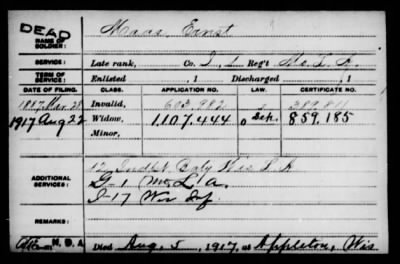 DEAD
NAME OF SOLDIER: Maas Ernst
SERVICE: Late rank, Co. I, 1 Reg't Mo. L. A.
TERM OF SERVICE: Enlisted , 1 Discharged , 1
DATE OF FILING. CLASS. APPLICATION NO. LAW. CERTIFICATE NO.
1887, Mar 28 Invalid, 603.982 389.811
1917 Aug 22 Widow, 1,107.444 859.185
Minor,
ADDITIONAL SERVICES: 12 Indpt. Bat'y Wis. L. A.
G-1 Mo. L. A.
I-17 Wis. Inf.
REMARKS:
N. D. A.
Died Aug. 5, 1917, at Appleton, Wis.